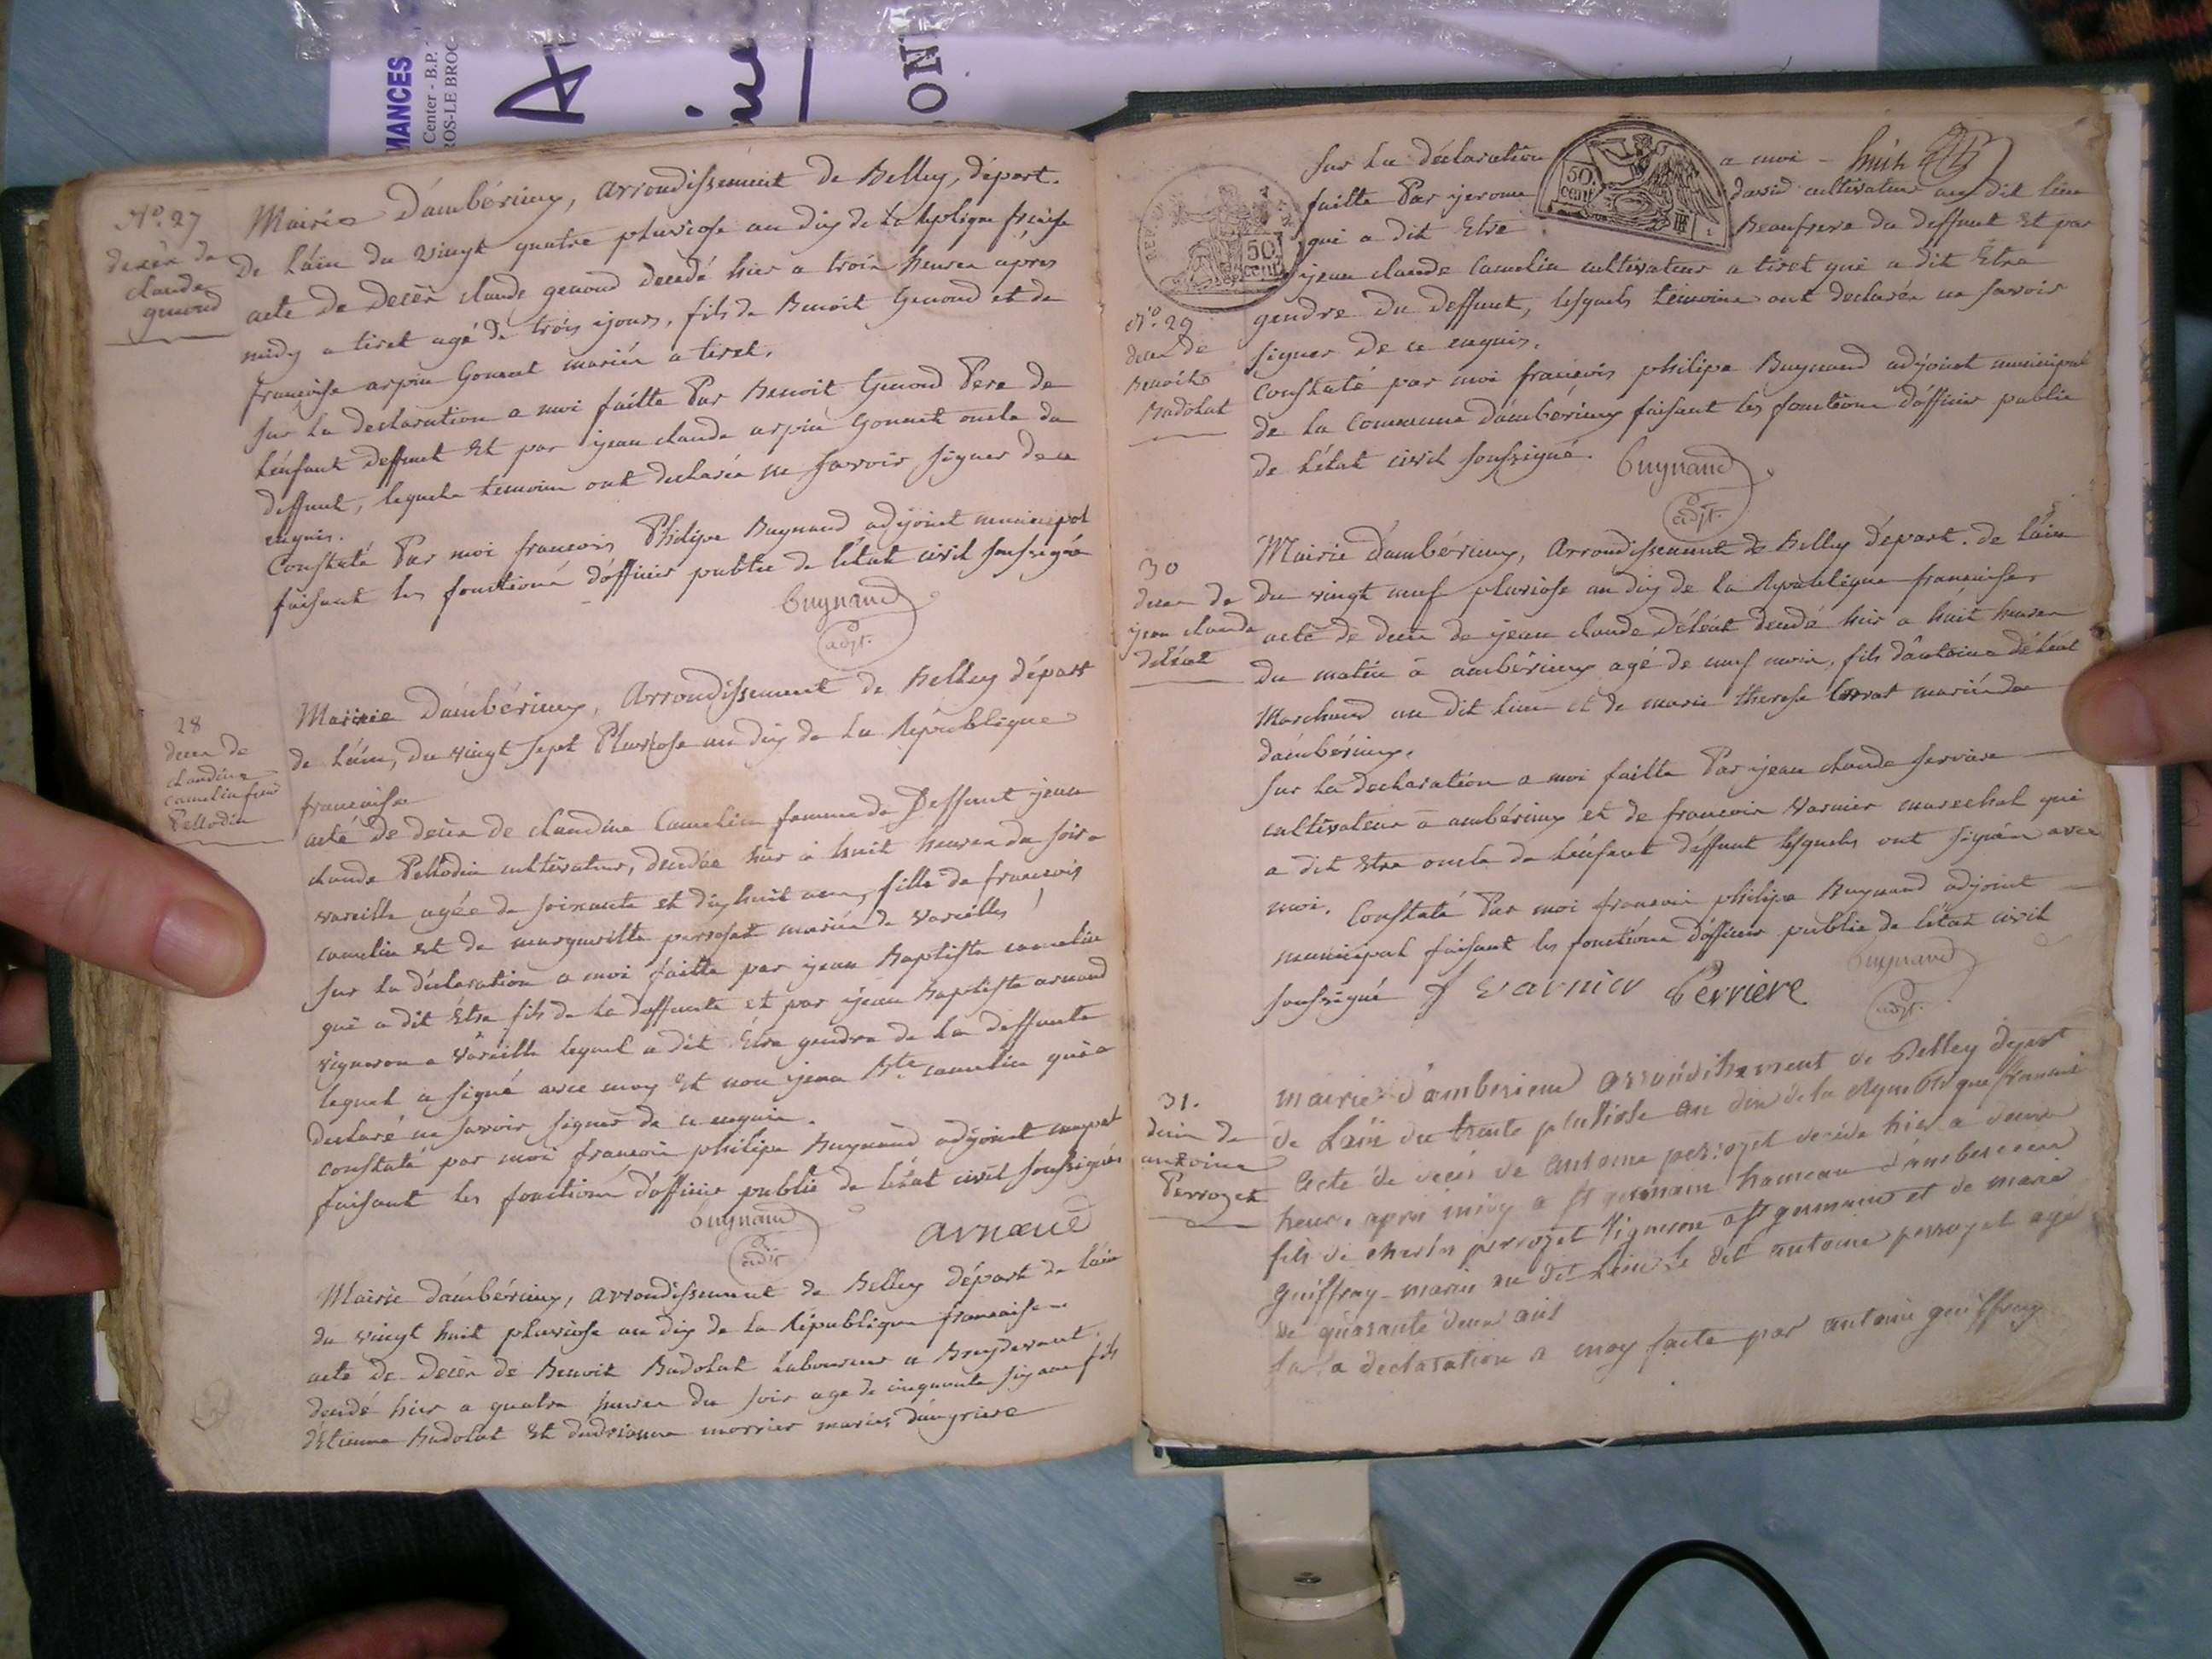 MANCES
Center - B.P.
ROS-LE BROC
ON
N.º 27
decès de
claude
genoud
Mairie d'ambérieux, arrondissement de Belley, départ.
de l'ain du vingt quatre pluviose an dix de la Republique
acte de decès claude genoud decedé hier a trois heures après
midy a tiret agé de trois jours, fils de Benoit Genoud et de
francoise arpin Gonnet mariés a tiret.
sur la declaration a moi faitte Par Benoit Genoud Pere de
l'enfant deffunt et par jean claude arpin Gonnet oncle du
deffunt, lesquels temoins ont declarés ne savoir signer de ce
enquis.
Constaté Par moi francois Philipe Bugnaud adjoint municipal
faisant les fonctions d'officier public de l'état civil soussigné
Bugnaud
adjt.
28
deces de
claudine
camelin
Pellodin
Mairie d'ambérieux, Arrondissement de Belley départ
de l'ain, du vingt sept Pluviose an dix de la République
francaise
acte de decès de claudine Camelin femme de Deffunt jean
claude Pellodin cultivateur, decedée hier a huit heures du soir a
vareille agée de soixante et dix huit ans, fille de francois
camelin et de margueritte perroset mariés de vareilles
sur la déclaration a moi faitte par jean Baptiste camelin
qui a dit être fils de la deffunte et par jean baptiste arnaud
vigneron a Vareille lequel a dit Etre gendre de la deffunte
lequel a signé avec moy et non jean Bte camelin qui a
declaré ne savoir signer de ce enquis.
constaté par moi francois philipe Bugnaud adjoint
faisant les fonctions d'officier public de l'état civil soussignés
Bugnaud
adjt
arnaud
Mairie d'ambérieux, arrondissement de Belley départ de l'ain
du vingt huit pluviose an dix de la République francaise
acte de decès de Benoit Badolat laboureur a
decedé hier a quatre heures du soir agé de cinquante six ans fils
d'Etienne Badolat et d'andrianne morrier mariés
sur la déclaration a moi
REP. FRA.
50 cent
50 cent
faitte Par jerome david cultivateur au dit lieu
qui a dit Etre Beaufrere du deffunt et par
jean claude Camelin cultivateur a tiret qui a dit Etre
N.º 29
deces de
Benoit
Badolat
gendre du deffunt, lesquels temoins ont declarés ne savoir
signer de ce enquis.
Constaté par moi francois philipe Bugnaud adjoint municipal
de la Commune d'ambérieux faisant les fonctions d'officier public
de l'état civil soussigné.
Bugnaud
adjt.
30
deces de
jean claude
deléat
Mairie d'ambérieux, Arrondissement de Belley départ. de l'ain
du vingt neuf pluviose an dix de la Republique francaise
acte de decès de jean claude déléat decedé hier a huit heures
du matin à ambérieux agé de neuf mois, fils d'antoine déléat
Marchand au dit lieu et de marie therese mariés
d'ambérieux.
sur la declaration a moi faitte Par jean claude
cultivateur à ambérieux et de francois Varnier marechal qui
a dit etre oncle de l'enfant deffunt lesquels ont signés avec
moi. Constaté Par moi francois philipe Bugnaud adjoint
municipal faisant les fonctions d'officier public de l'état civil
soussigné f varnier Perriere
Bugnaud
adjt.
31.
deces de
antoine
Perrozet
mairie d'amberieux arrondissement de Belley depart
de Lain du trente pluviose an dix de la republique francaise
Acte de deces de antoine perrozet decede hier a deux
heure. apres midy a st germain hameau d'amberieux
fils de charles perrozet Vigneron a st germain et de marie
guiffray marié au dit lieu le dit antoine perrozet agé
de quarante deux ans
sur la declaration a moy faite par antoine guiffray